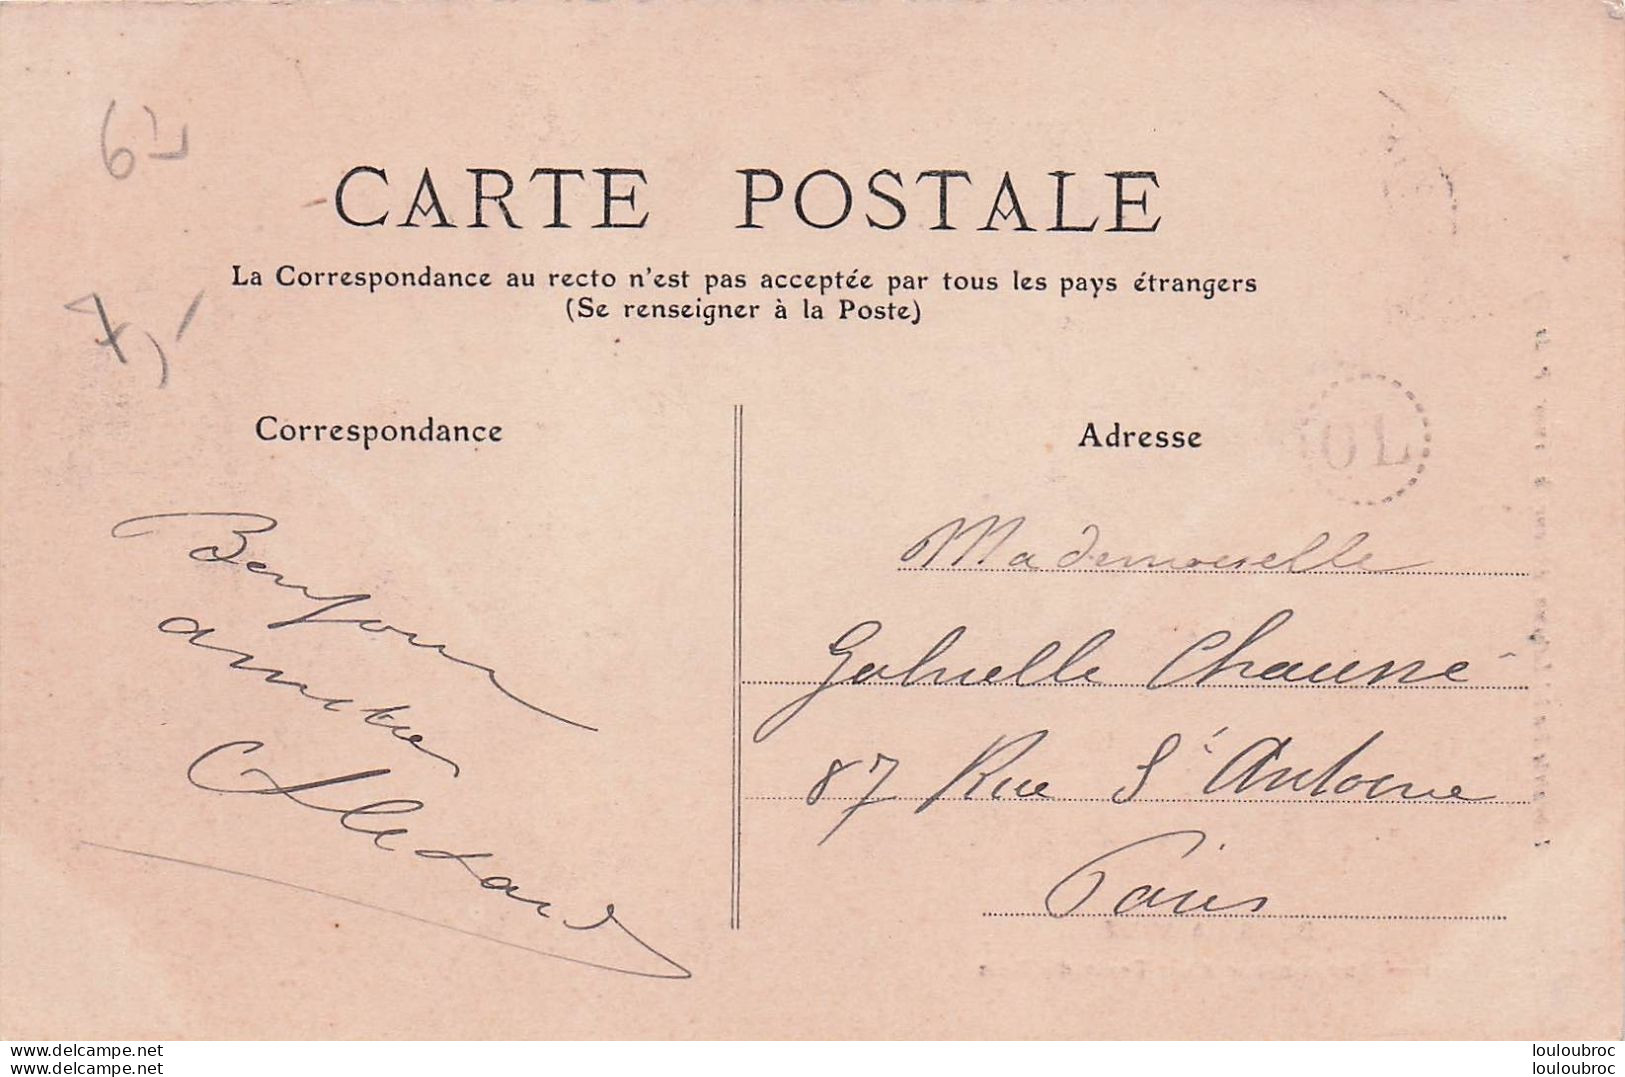 62
CARTE POSTALE
La Correspondance au recto n'est pas acceptée par tous les pays étrangers
(Se renseigner à la Poste)
7,-
Correspondance
Adresse
OL
Bonjour
amical
Mademoiselle
Gabrielle Chausse
87 Rue St Antoine
Paris
www.delcampe.net
www.delcampe.net
louloubroc
louloubroc